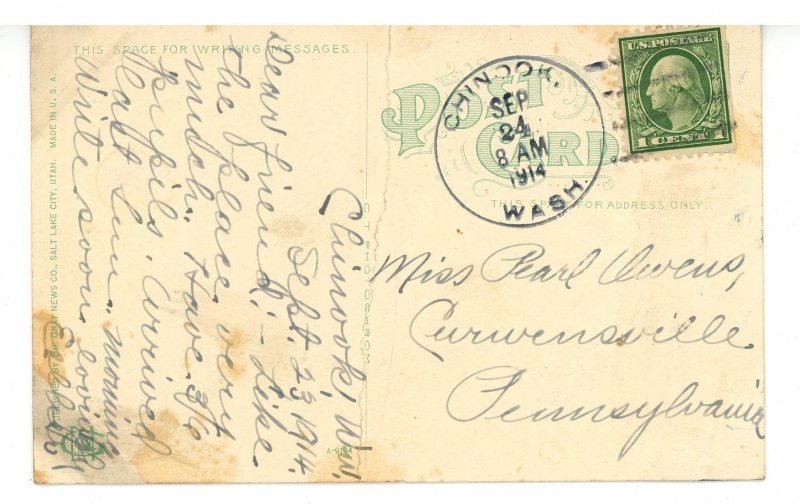 THIS SPACE FOR WRITING MESSAGES.
POST CARD
THIS SPACE FOR ADDRESS ONLY.
CHINOOK,
SEP
24
8 AM
1914
WASH.
U.S. POSTAGE
1 CENT 1
Chinook, Wn.
Sept. 23, 1914.
Dear friend:- Like
the place very
much. Have 36
pupils. Arrived
last Sun. morning
Write soon, loving
Miss Pearl Owens,
Curwensville
Pennsylvania
PUBLISHED BY THE GRAY NEWS CO., SALT LAKE CITY, UTAH. MADE IN U. S. A.